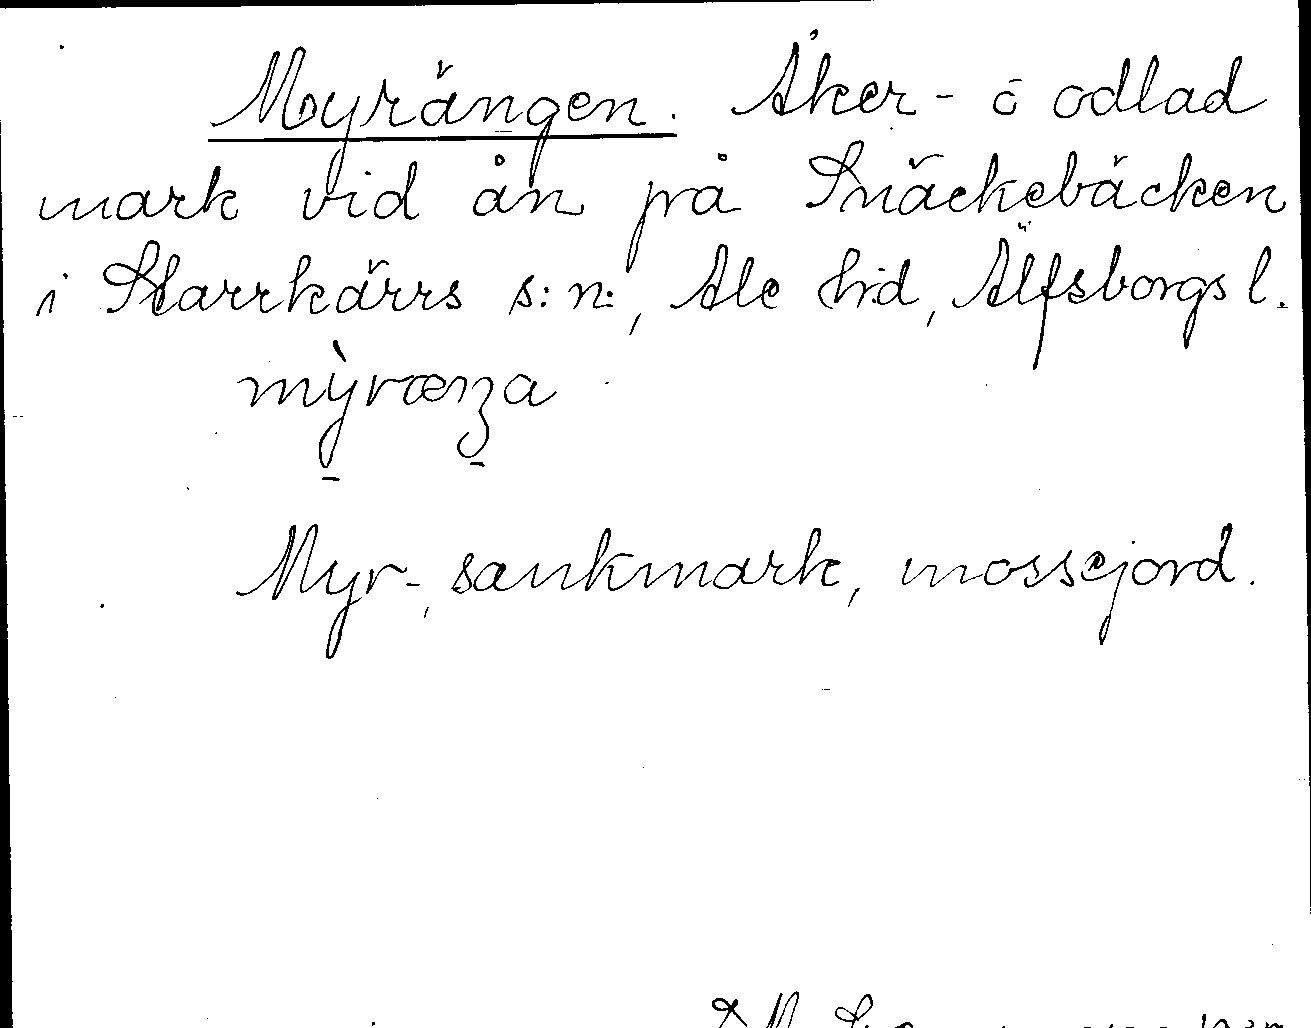 Myrängen. Åker- o odlad
mark vid ån på Snäckebäcken
i Starrkärrs s:n:, Ale hrd, Älfsborgs l.
mỳræŋa
Myr-, sankmark, mossejord.